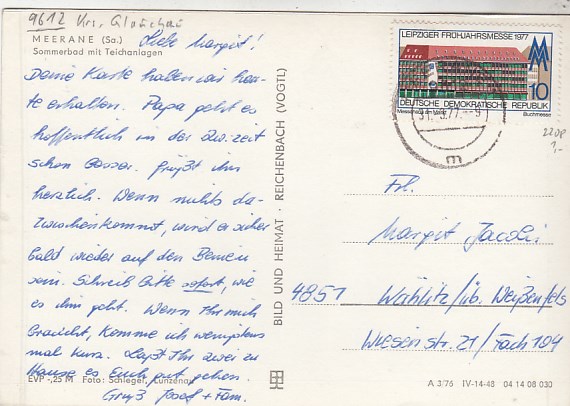 9612 Krs. Glauchau
MEERANE (Sa.)
Sommerbad mit Teichanlagen
Liebe Margit!
Deine Karte haben wir heu-
te erhalten. Papa geht es
hoffentlich in der Zw.zeit
schon besser. Grüßt ihn
herzlich. Wenn nichts da-
zwischenkommt, wird er sicher
bald wieder auf den Beinen
sein. Schreib bitte sofort, wie
es ihm geht. Wenn Ihr mich
braucht, komme ich wenigstens
mal kurz. Laßt Ihr zwei zu
Hause es Euch gut gehen.
Gruß Josef + Fam.
EVP -,25 M Foto: Schlegel, Lunzenau
BILD UND HEIMAT · REICHENBACH (VOGTL)
LEIPZIGER FRÜHJAHRSMESSE 1977
MM
10
DEUTSCHE DEMOKRATISCHE REPUBLIK
Messehaus am Markt
Buchmesse
77-9
m
1,-
Frl.
Margit Jacobi
4851 Wählitz/üb. Weißenfels
Wiesenstr. 21/Fach 104
A 3/76 IV-14-48 04 14 08 030